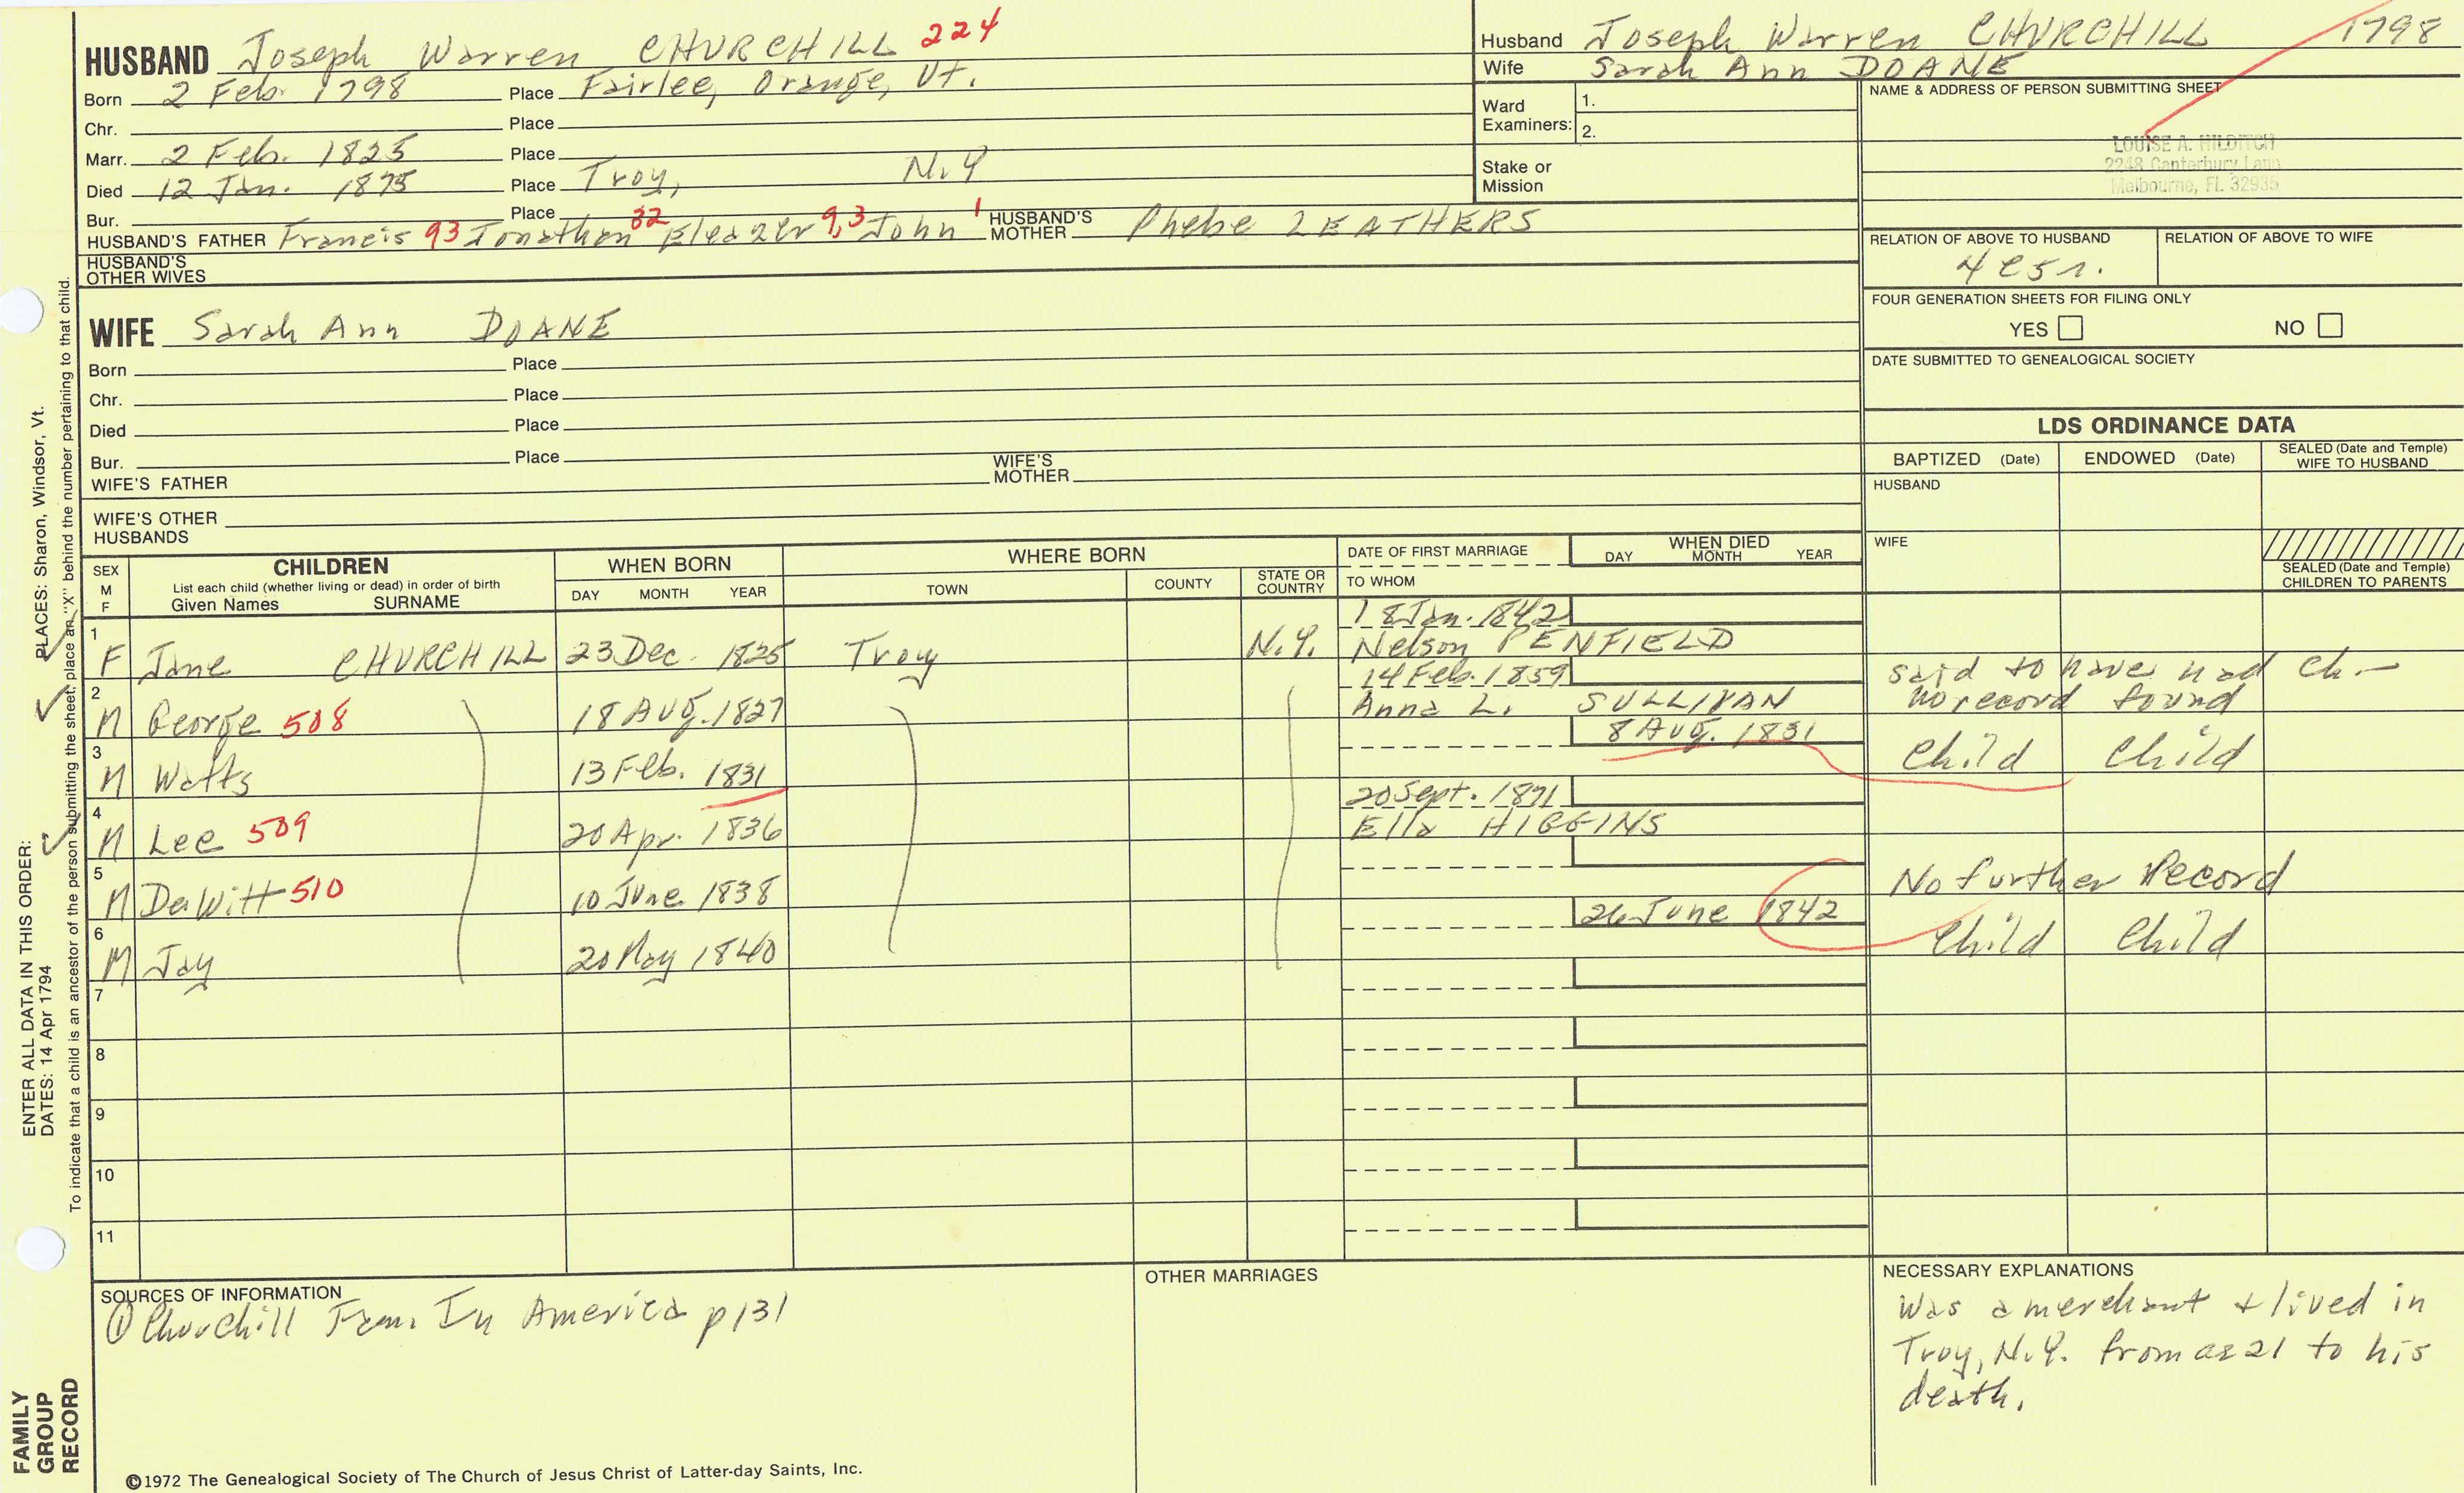 HUSBAND Joseph Warren CHURCHILL 224
Born 2 Feb. 1798 Place Fairlee, Orange, Vt.
Chr. Place
Marr. 2 Feb. 1825 Place
Died 12 Jan. 1875 Place Troy, N.Y
Bur. Place
HUSBAND'S FATHER Francis 93 Jonathan 32 Eleazer 9,3 John 1 HUSBAND'S MOTHER Phebe LEATHERS
HUSBAND'S OTHER WIVES
WIFE Sarah Ann DOANE
Born Place
Chr. Place
Died Place
Bur. Place
WIFE'S FATHER WIFE'S MOTHER
WIFE'S OTHER HUSBANDS
Husband Joseph Warren CHURCHILL 1798
Wife Sarah Ann DOANE
Ward Examiners: 1.
2.
Stake or Mission
NAME & ADDRESS OF PERSON SUBMITTING SHEET
LOUISE A. HILDITCH
2248 Canterbury Lane
Melbourne, Fl. 32935
RELATION OF ABOVE TO HUSBAND RELATION OF ABOVE TO WIFE
4c5r.
FOUR GENERATION SHEETS FOR FILING ONLY
YES NO
DATE SUBMITTED TO GENEALOGICAL SOCIETY
LDS ORDINANCE DATA
BAPTIZED (Date) ENDOWED (Date) SEALED (Date and Temple) WIFE TO HUSBAND
HUSBAND
WIFE
SEALED (Date and Temple) CHILDREN TO PARENTS
SEX M F CHILDREN
List each child (whether living or dead) in order of birth
Given Names SURNAME
WHEN BORN
DAY MONTH YEAR
WHERE BORN
TOWN COUNTY STATE OR COUNTRY
DATE OF FIRST MARRIAGE
TO WHOM
WHEN DIED
DAY MONTH YEAR
1 F Jane CHURCHILL 23 Dec. 1825 Troy N.Y. 18 Jan. 1842
Nelson PENFIELD
2 M George 508 18 Aug. 1827 14 Feb. 1859
Anna L. SULLIVAN said to have had ch. –
no record found
3 M Watts 13 Feb. 1831 8 Aug. 1831 Child Child
4 M Lee 509 20 Apr. 1836 20 Sept. 1871
Ella HIGGINS
5 M DeWitt 510 10 June 1838 No further Record
6 M Jay 20 May 1840 26 June 1842 Child Child
7
8
9
10
11
SOURCES OF INFORMATION
① Churchill Fam. In America p 131
OTHER MARRIAGES
NECESSARY EXPLANATIONS
Was a merchant & lived in
Troy, N.Y. from ae 21 to his
death.
©1972 The Genealogical Society of The Church of Jesus Christ of Latter-day Saints, Inc.
FAMILY
GROUP
RECORD
ENTER ALL DATA IN THIS ORDER:
DATES: 14 Apr 1794
PLACES: Sharon, Windsor, Vt.
To indicate that a child is an ancestor of the person submitting the sheet, place an "X" behind the number pertaining to that child.